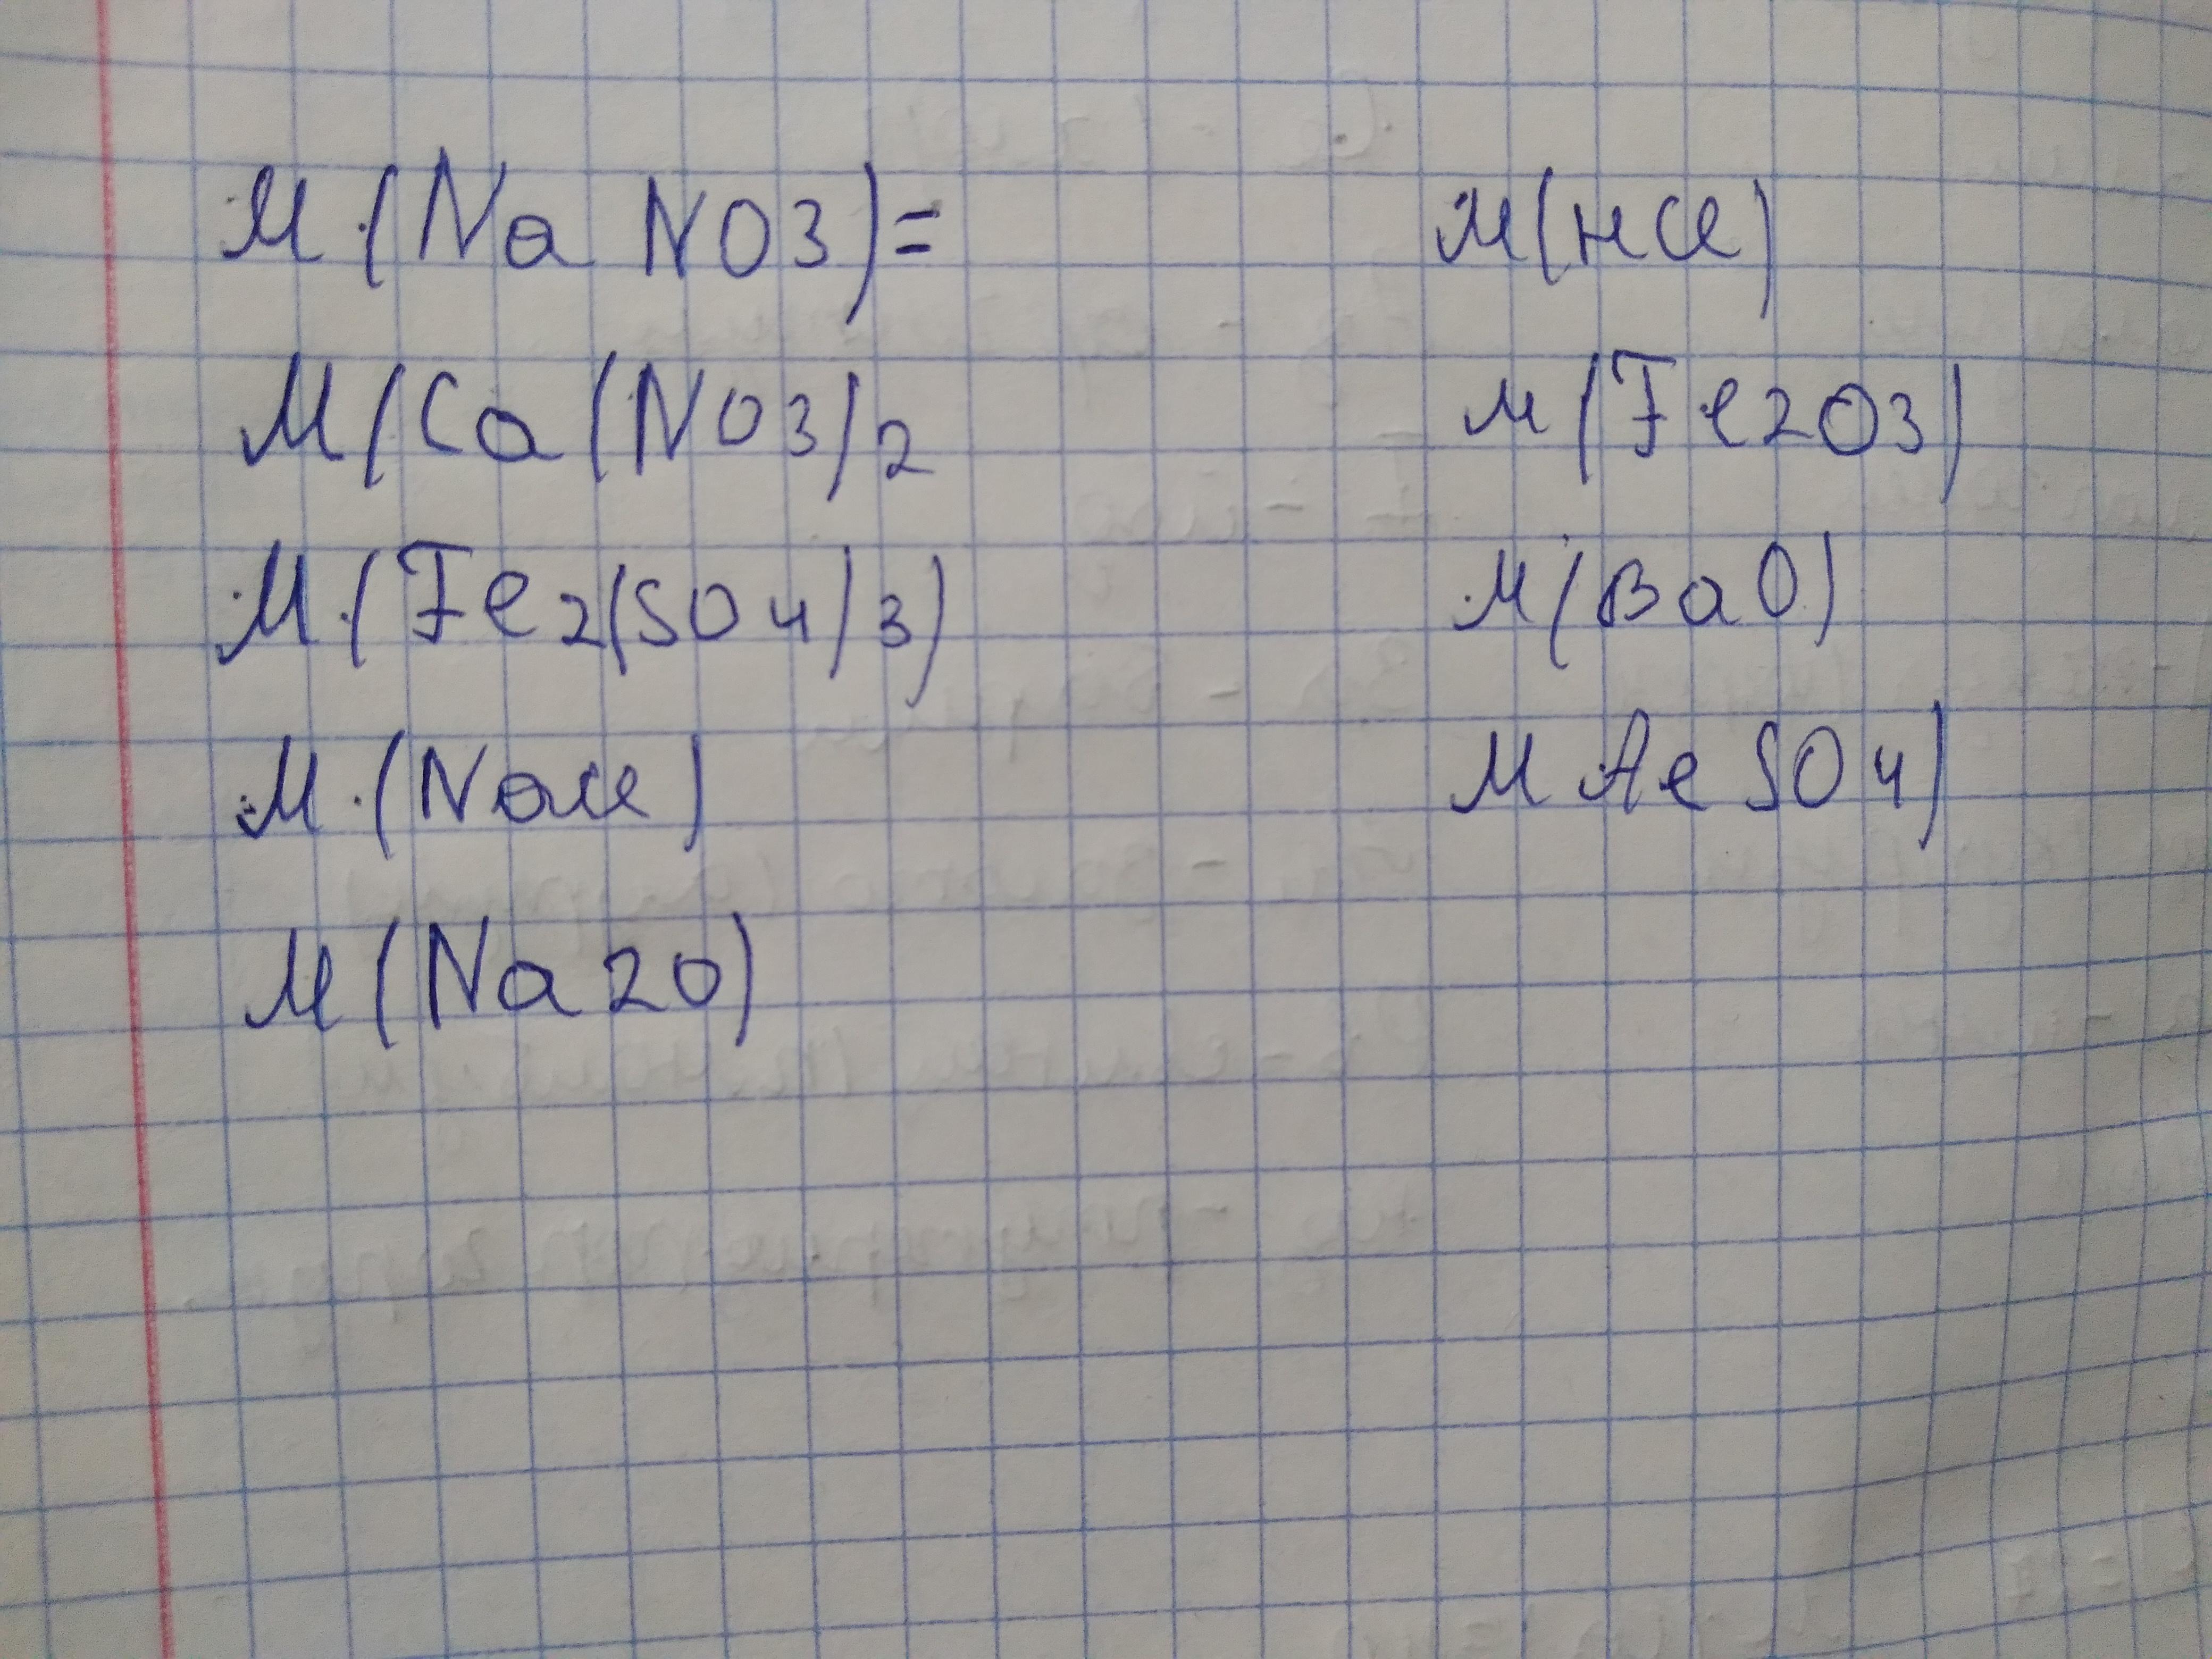 M(NaNO3)=
M(Ca(NO3)2
M(Fe2(SO4)3)
M(NaCl)
M(Na2O)
M(HCl)
M(Fe2O3)
M(BaO)
M AlSO4)